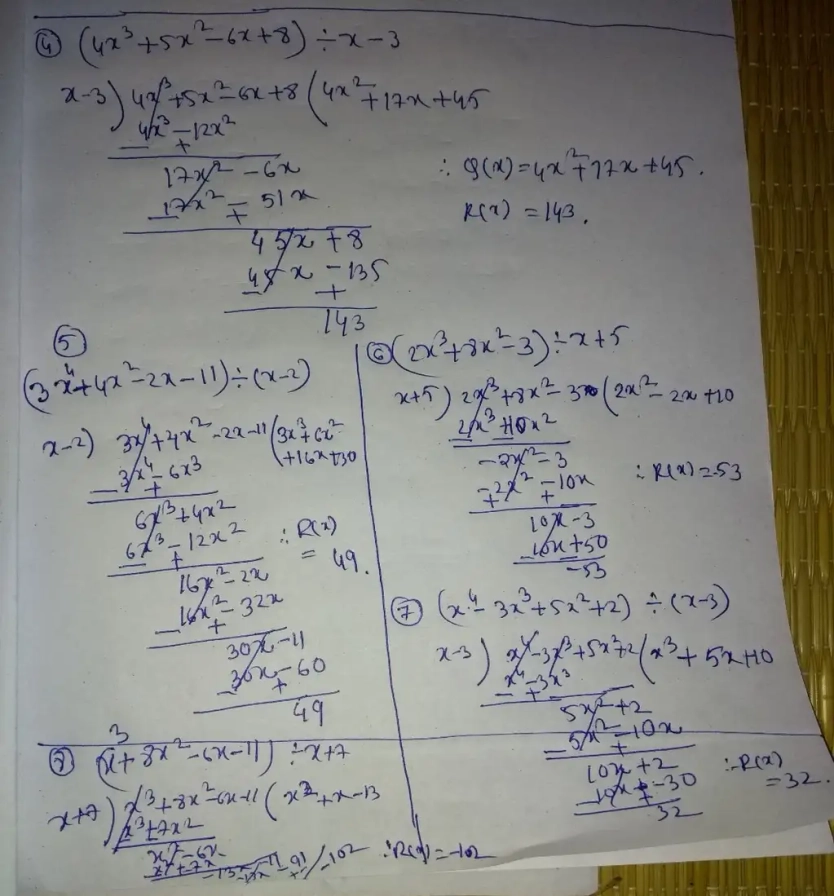 ④ (4x³+5x²-6x+8) ÷ x-3
x-3) 4x³+5x²-6x+8 (4x²+17x+45
4x³-12x²
- +
17x² - 6x
17x² - 51x
- +
45x + 8
45x - 135
- +
143
∴ Q(x) = 4x²+17x+45.
R(x) = 143.
⑤
(3x⁴+4x²-2x-11) ÷ (x-2)
x-2) 3x⁴+4x²-2x-11 (3x³+6x²
+16x+30
3x⁴-6x³
- +
6x³+4x²
6x³-12x²
- +
16x²-2x
16x²-32x
- +
30x-11
30x-60
- +
49
∴ R(x)
= 49.
⑥ (2x³+8x²-3) ÷ x+5
x+5) 2x³+8x²-3 (2x²-2x+10
2x³+10x²
-2x²-3
-2x²-10x
+ +
10x-3
10x+50
-53
∴ R(x)=53
⑦ (x⁴-3x³+5x²+2) ÷ (x-3)
x-3) x⁴-3x³+5x²+2 (x³+5x+10
x⁴-3x³
- +
5x²+2
5x²-10x
- +
10x+2
10x-30
- +
32
∴ R(x)
= 32.
⑦ (x³+8x²-6x-11) ÷ x+7
x+7) x³+8x²-6x-11 (x²+x-13
x³+7x²
x²-6x
x²+7x
-13x-11
-13x-91
-102
∴ R(x)=-102